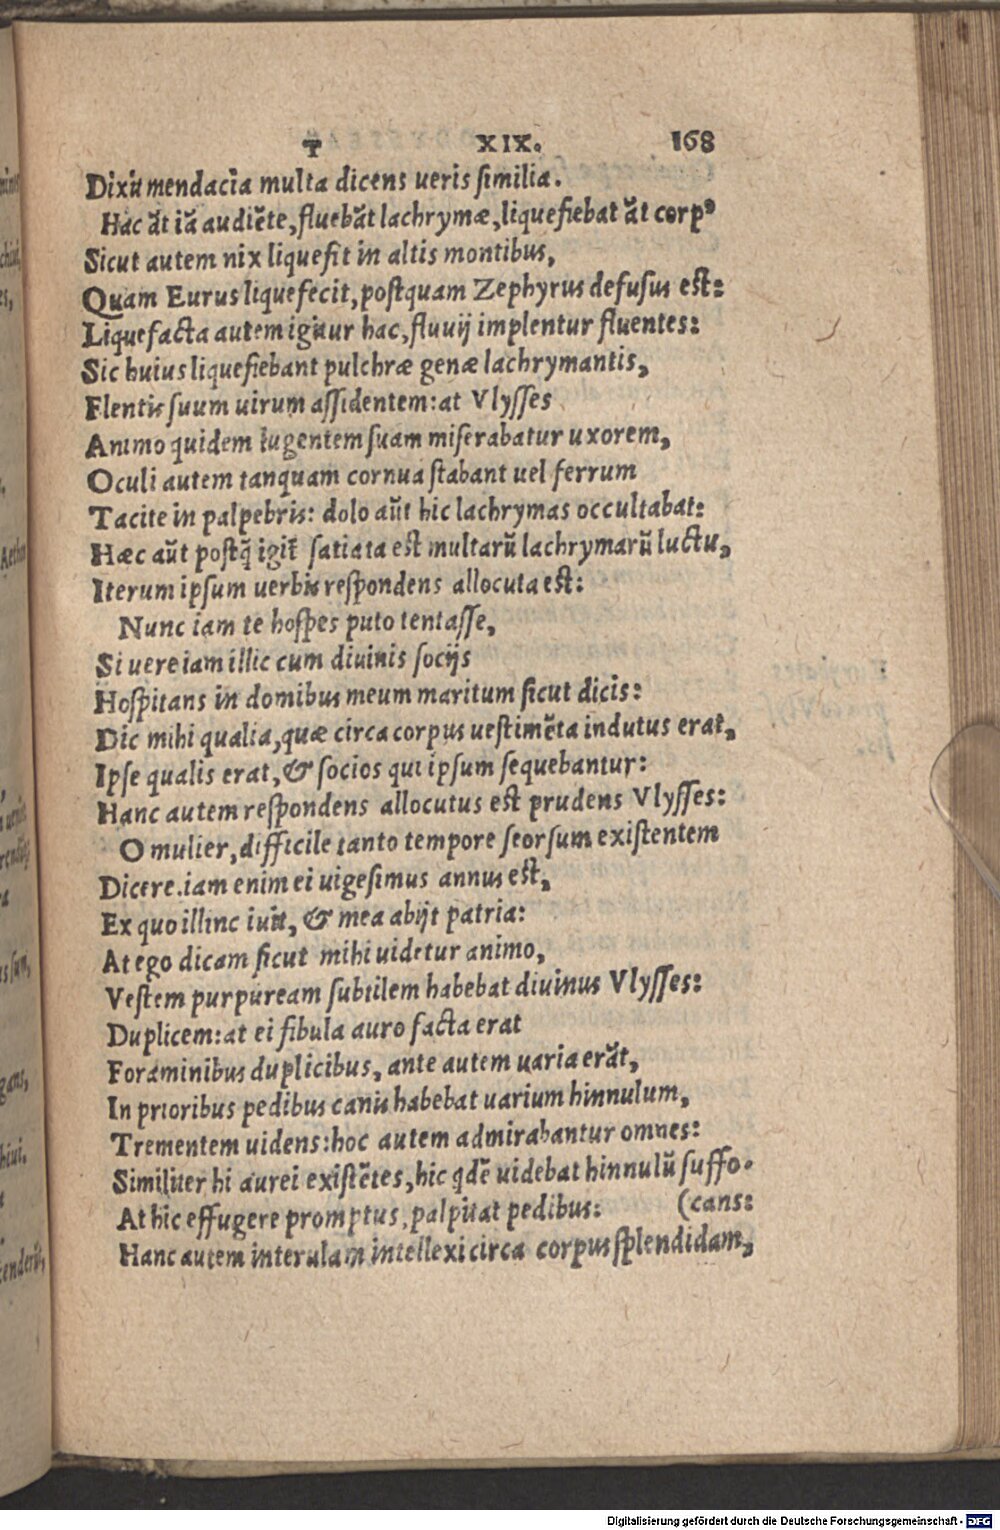 T XIX. 168
Dixit mendacia multa dicens ueris similia.
Hac āt iā audiēte, fluebāt lachrymæ, liquefiebat āt corpꝰ
Sicut autem nix liquefit in altis montibus,
Quam Eurus liquefecit, postquam Zephyrus defusus est:
Liquefacta autem igitur hac, fluuij implentur fluentes:
Sic huius liquefiebant pulchræ genæ lachrymantis,
Flentis suum uirum assidentem: at Vlysses
Animo quidem lugentem suam miserabatur uxorem,
Oculi autem tanquam cornua stabant uel ferrum
Tacite in palpebris: dolo aūt hic lachrymas occultabat:
Hæc aūt postq̄ igit̄ satiata est multarū lachrymarū luctu,
Iterum ipsum uerbis respondens allocuta est:
Nunc iam te hospes puto tentasse,
Si uere iam illic cum diuinis socijs
Hospitans in domibus meum maritum sicut dicis:
Dic mihi qualia, quæ circa corpus uestimēta indutus erat,
Ipse qualis erat, & socios qui ipsum sequebantur:
Hanc autem respondens allocutus est prudens Vlysses:
O mulier, difficile tanto tempore seorsum existentem
Dicere. iam enim ei uigesimus annus est,
Ex quo illinc iuit, & mea abijt patria:
At ego dicam sicut mihi uidetur animo,
Vestem purpuream subtilem habebat diuinus Vlysses:
Duplicem: at ei fibula auro facta erat
Foraminibus duplicibus, ante autem uaria erāt,
In prioribus pedibus canis habebat uarium hinnulum,
Trementem uidens: hoc autem admirabantur omnes:
Similiter hi aurei existētes, hic qdē uidebat hinnulū suffo-
At hic effugere promptus, palpitat pedibus: (cans:
Hanc autem interulam intellexi circa corpus splendidam,
Digitalisierung gefördert durch die Deutsche Forschungsgemeinschaft - DFG